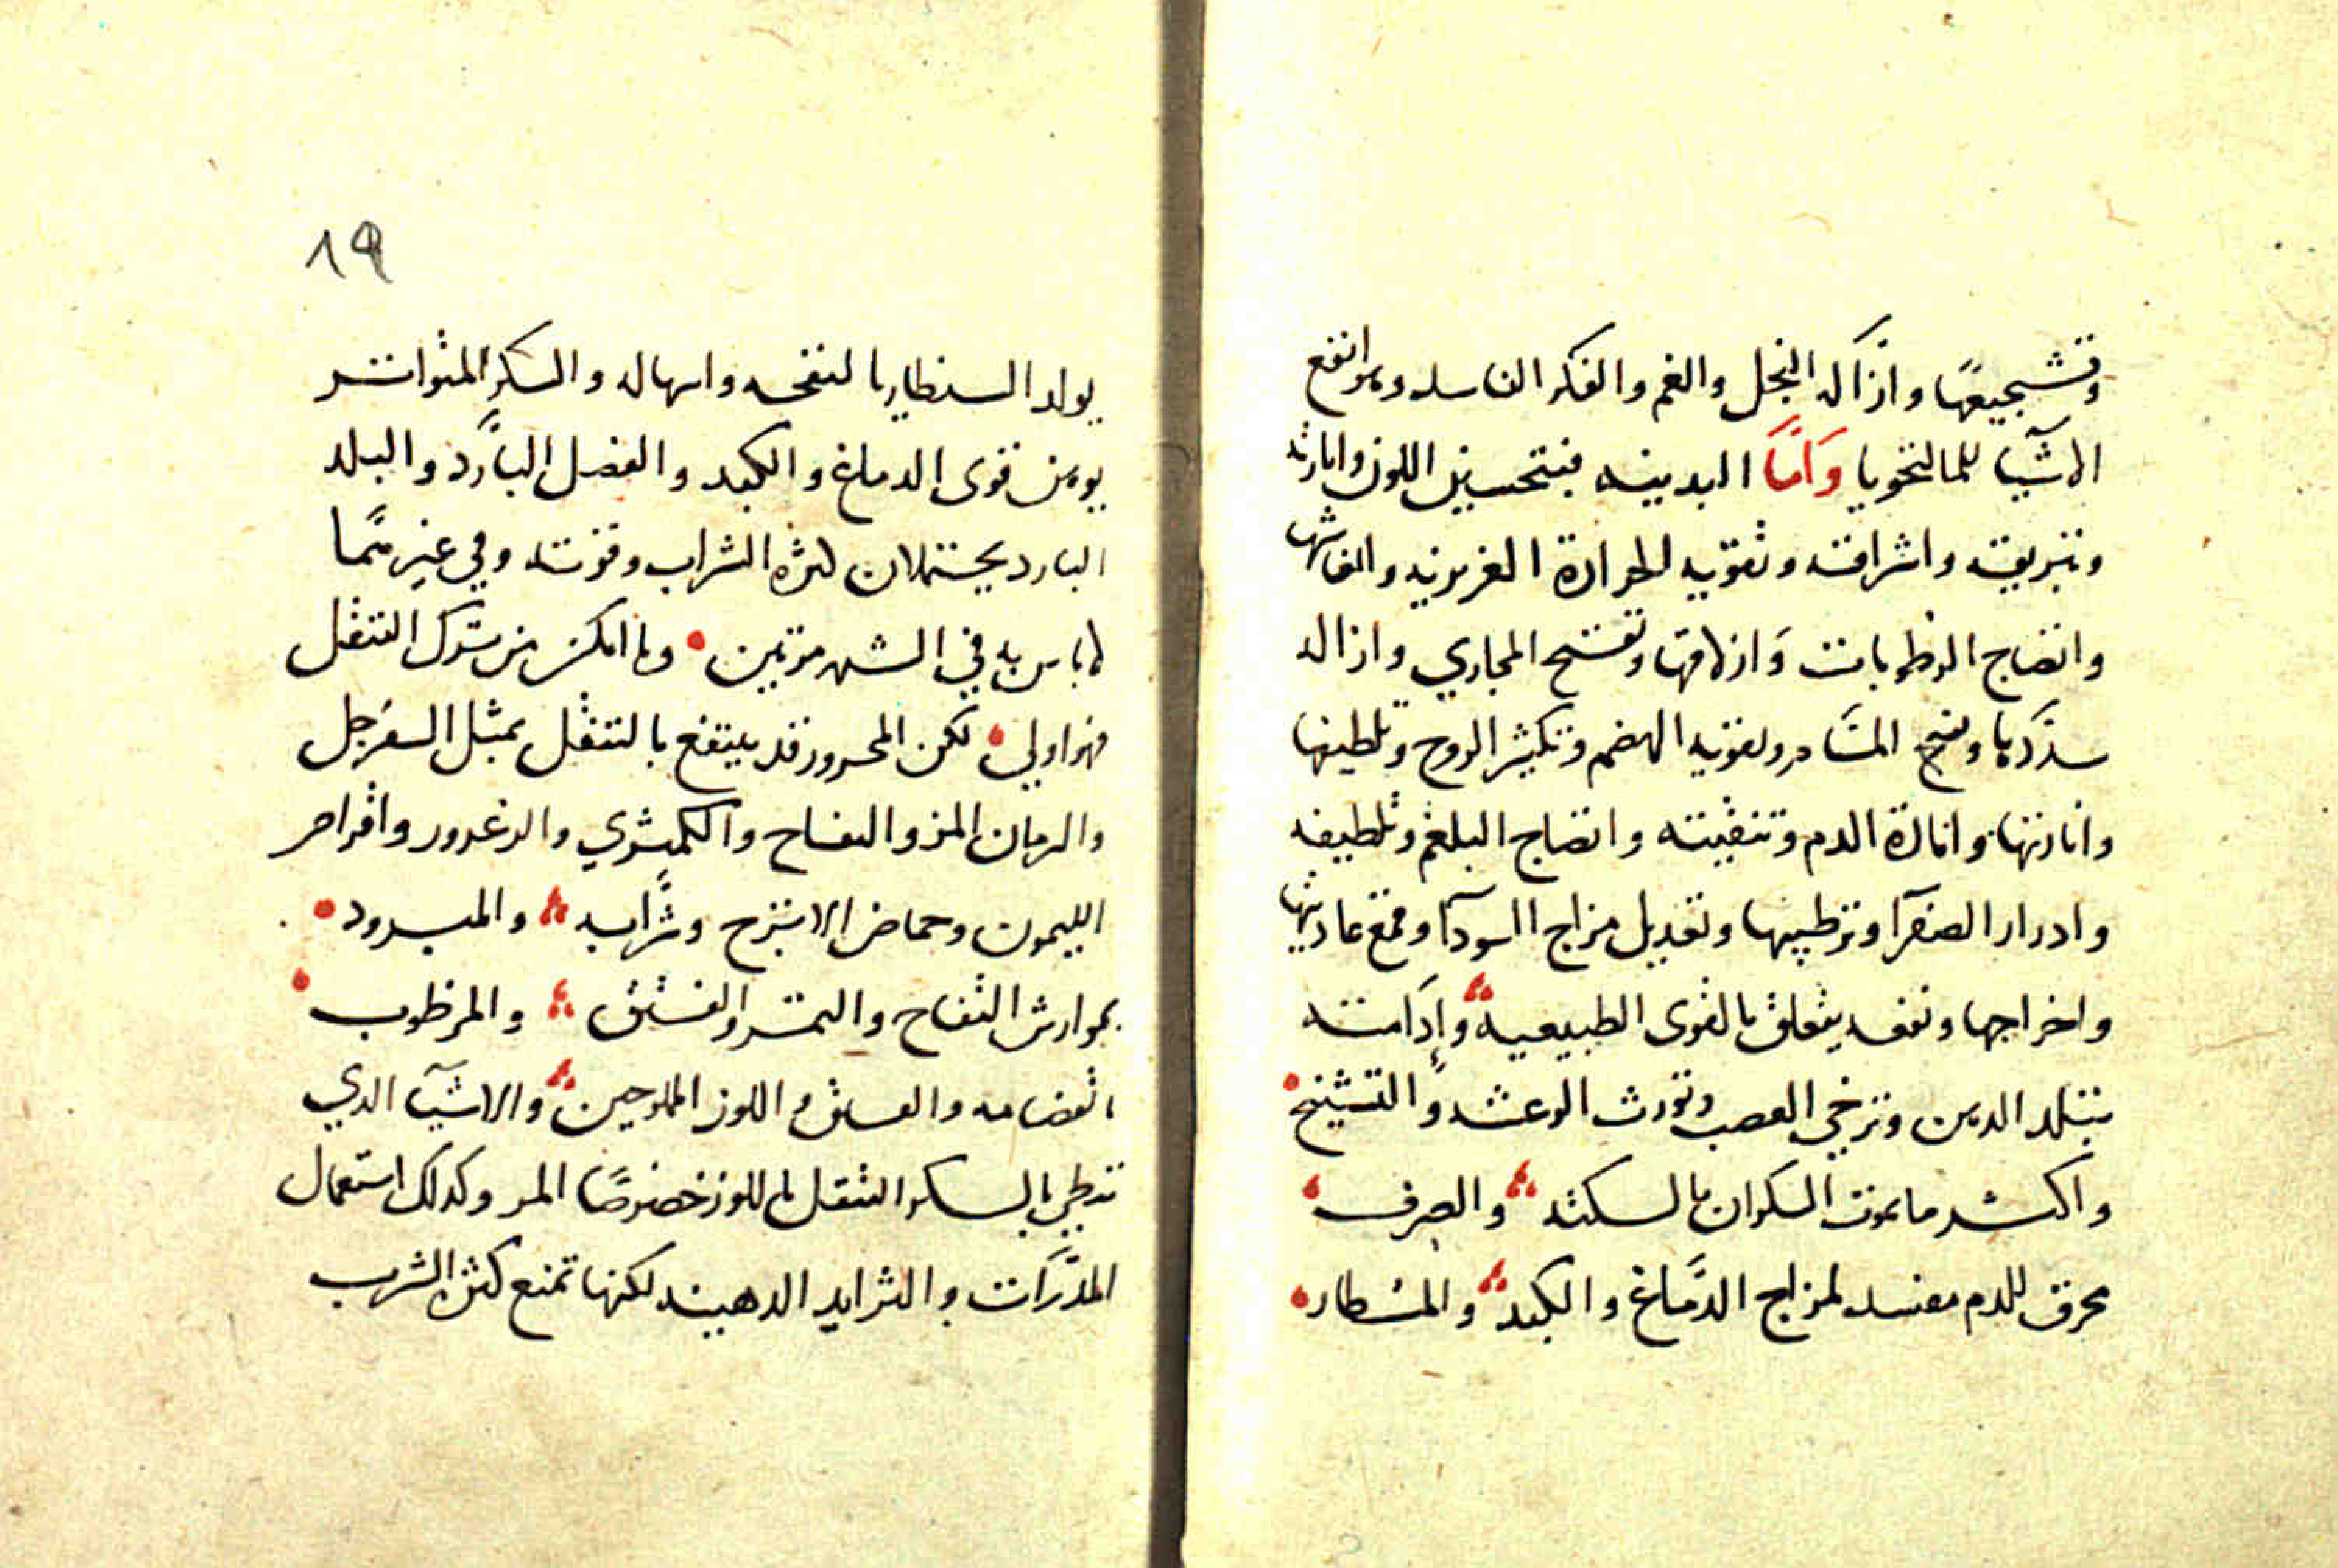 وتشجيعها وازاله البخل والغم والفكر الفاسد وهو انفع
الاشيا للمالنخوليا وَامّا البدنيه فبتحسين اللون وانارته
وتبريقه واشراقه وتقويه الحرارة الغريزيه وانعاشها
وانضاج الرطوبات وازلاقها وتفتح المجاري وازاله
سددها وفتح المسام وتقويه الهضم وتكثير الروح وتلطيفها
وانارتها وانارة الدم وتنقيته وانضاج البلغم وتلطيفه
وادرار الصفرآ وترطيبها وتعديل مزاج السودآ وقمع عاديتها
واخراجها ونفعه يتعلق بالقوى الطبيعيه وإدامته
تبلد الدهن وترخي العصب وتورث الرعشه والتشنج
واكثر ما يموت السكران بالسكته والصرف
محرق للدم مفسد لمزاج الدّماغ والكبد والمسطار
١٩
يولد السنطاريا لنفخه واسهاله والسكر المتواتر
يوهن قوى الدماغ والكبد والفصل البارد والبلد
البارد يحتملان كثرة الشراب وقوته وفي غيرهما
لا باس به في الشهر مرتين وما امكن من ترك التنقل
فهو اولي لكن المحرور قد ينتفع بالتنقل بمثل السفرجل
والرمان المز والتفاح والكمثري والزعرور واقراص
الليمون وحماض الاترج وشرابه والمبرود
بجوارش التفاح والتمر والفستق والمرطوب
بالقضامه والفستق واللوز المملوحين والاشيآ الذي
تبطي بالسكر التنقل باللوز خصوصًا المر وكذلك استعمال
المدرّات والثرايد الدهنيه لكنها تمنع كثرة الشرب